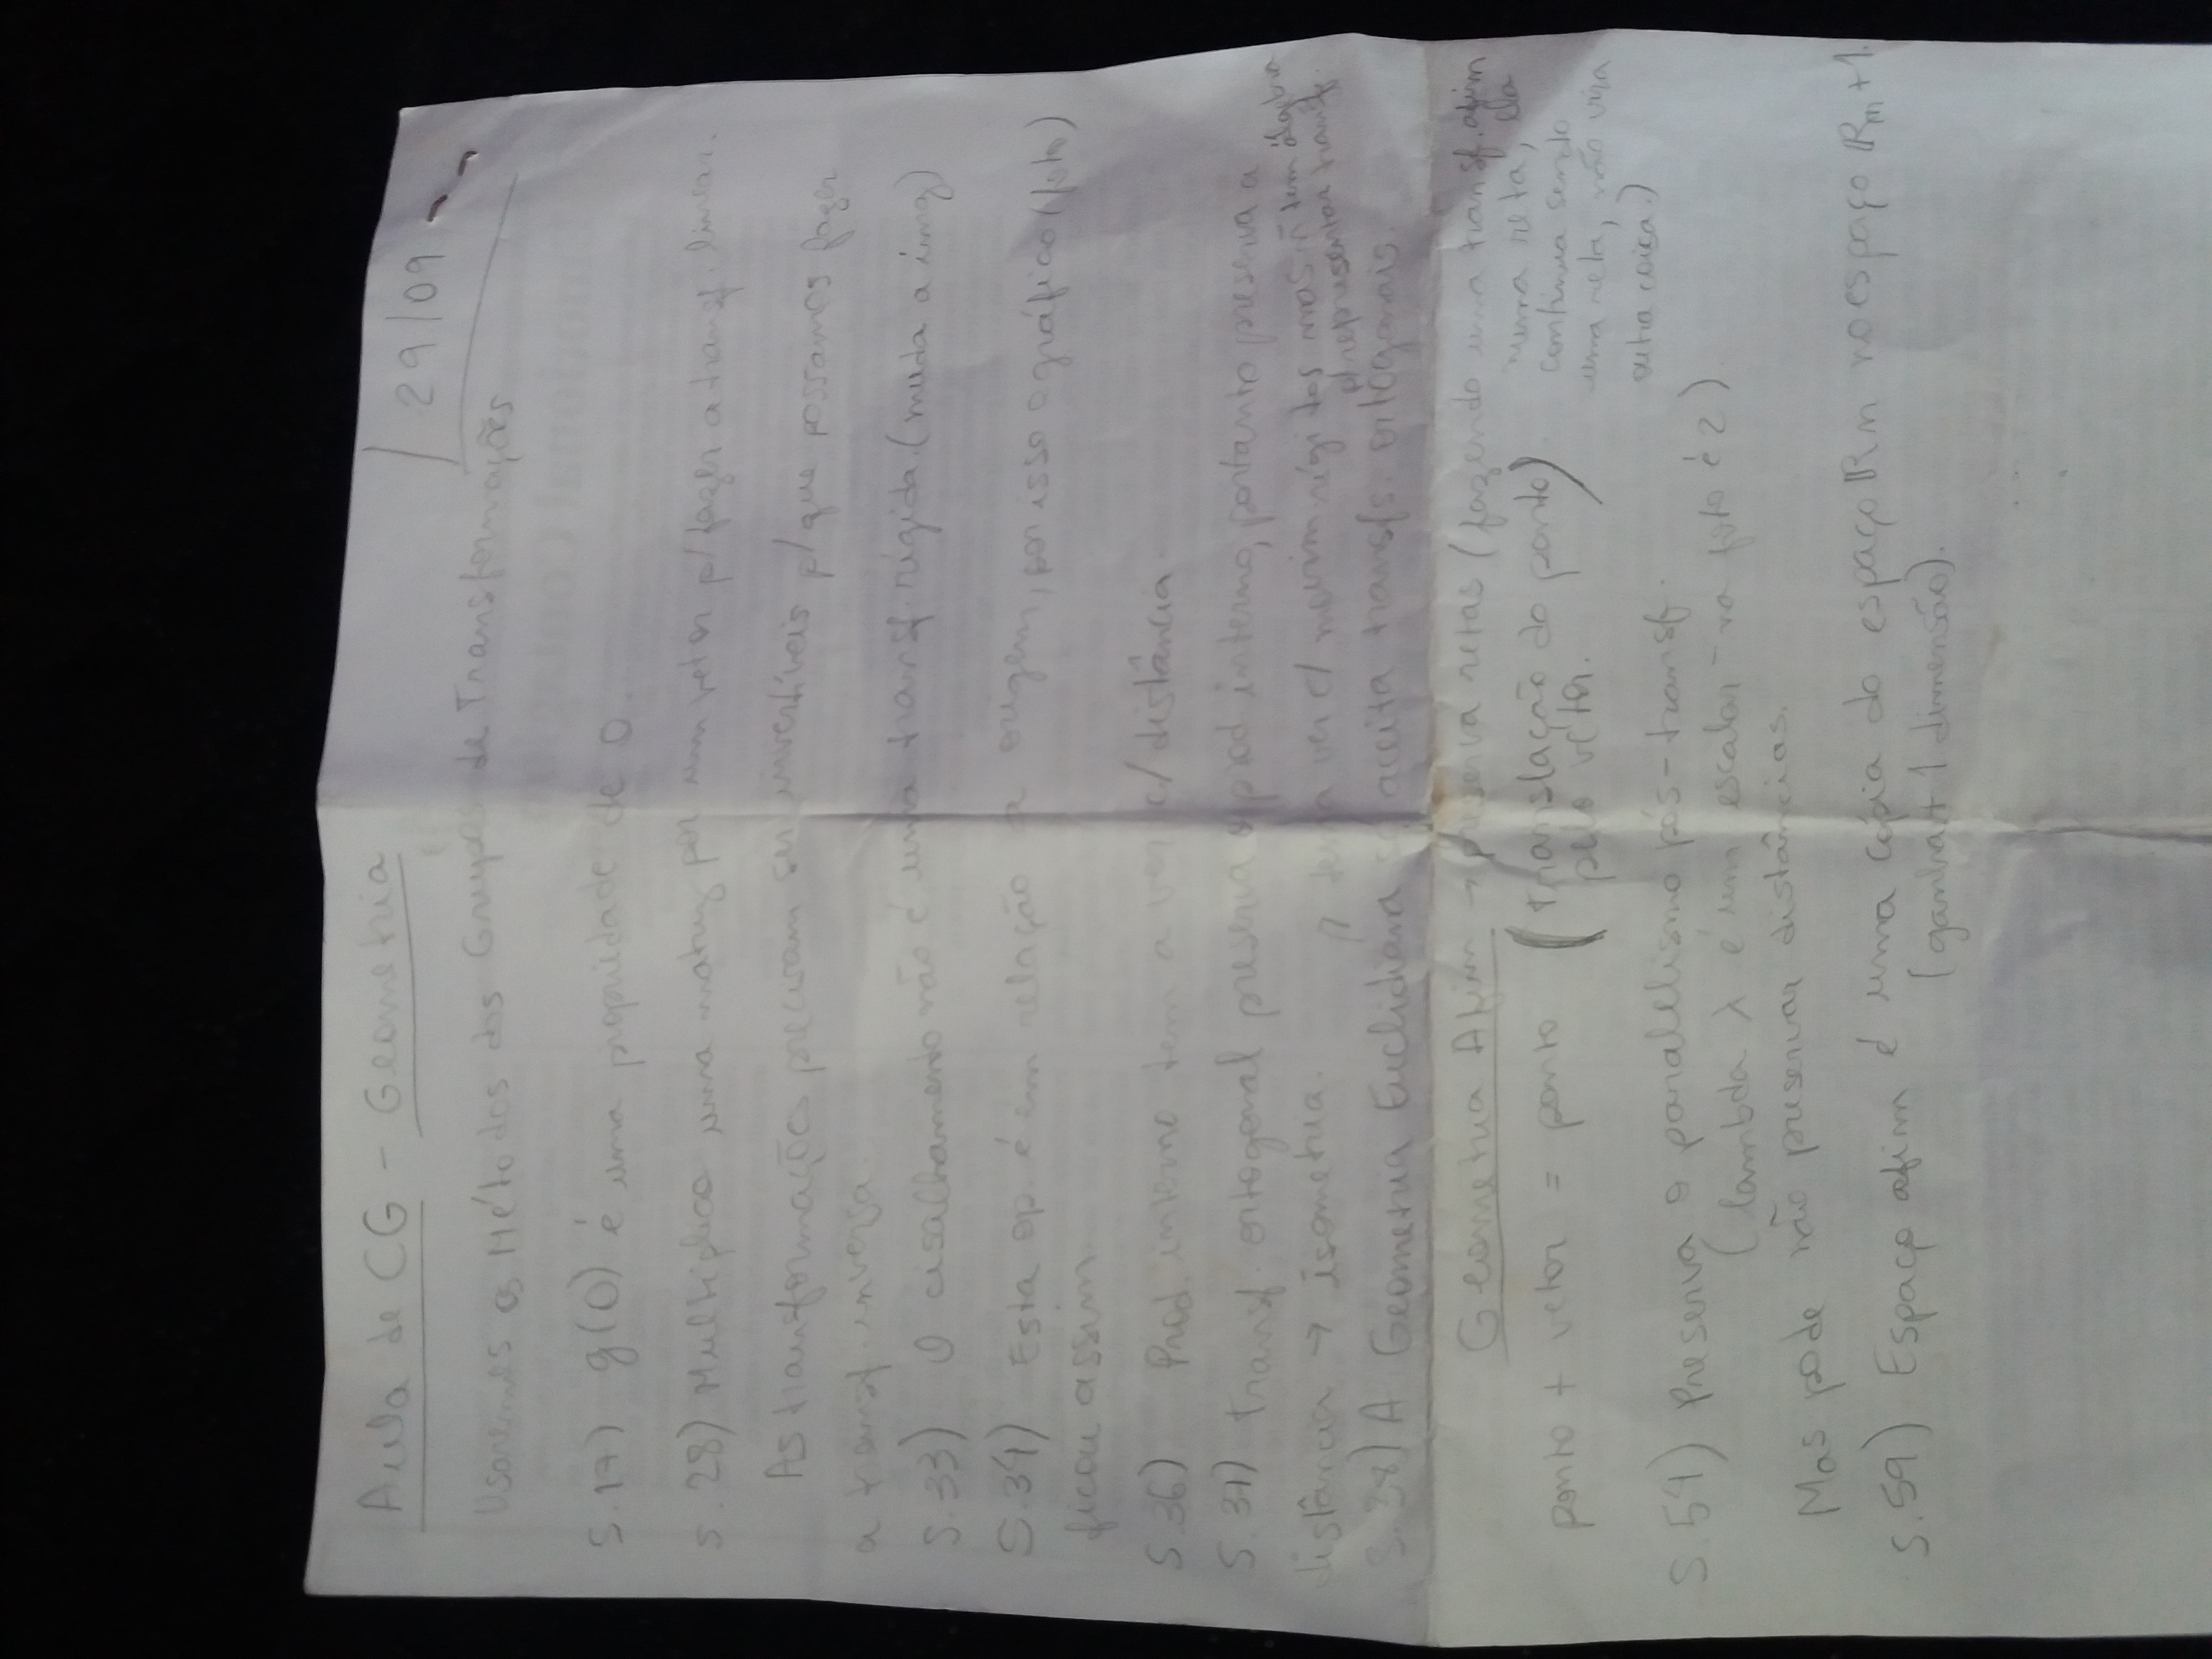 Aula de CG - Geometria
29/09
Usaremos os Métodos dos Grupos de Transformações
S.17) g(O) é uma propriedade de O.
S.28) Multiplico uma matriz por um vetor p/ fazer a transf. linear.
As transformações precisam ser invertíveis p/ que possamos fazer
a transf. inversa.
S.33) O cisalhamento não é uma transf. rígida (muda a img)
S.34) Esta op. é em relação a origem, por isso o gráfico (foto)
ficou assim.
S.36) Prod. interno tem a ver c/ distância
S.37) transf. ortogonal preserva prod interno, portanto preserva a
distância → isometria.
tem a ver c/ movim rígidos mas ñ tem álgebra
p/ representar transf.
S.38) A Geometria Euclidiana só aceita transfs. ortogonais.
Geometria Afim → preserva retas (fazendo uma transf. afim
numa reta, ela
continua sendo
uma reta, não vira
outra coisa.)
ponto + vetor = ponto (translação do ponto)
pelo vetor.
S.54) Preserva o paralelismo pós-transf.
(lambda λ é um escalar - na foto é 2)
Mas pode não preservar distâncias.
S.59) Espaço afim é uma cópia do espaço ℝn no espaço ℝn+1.
(ganha + 1 dimensão).